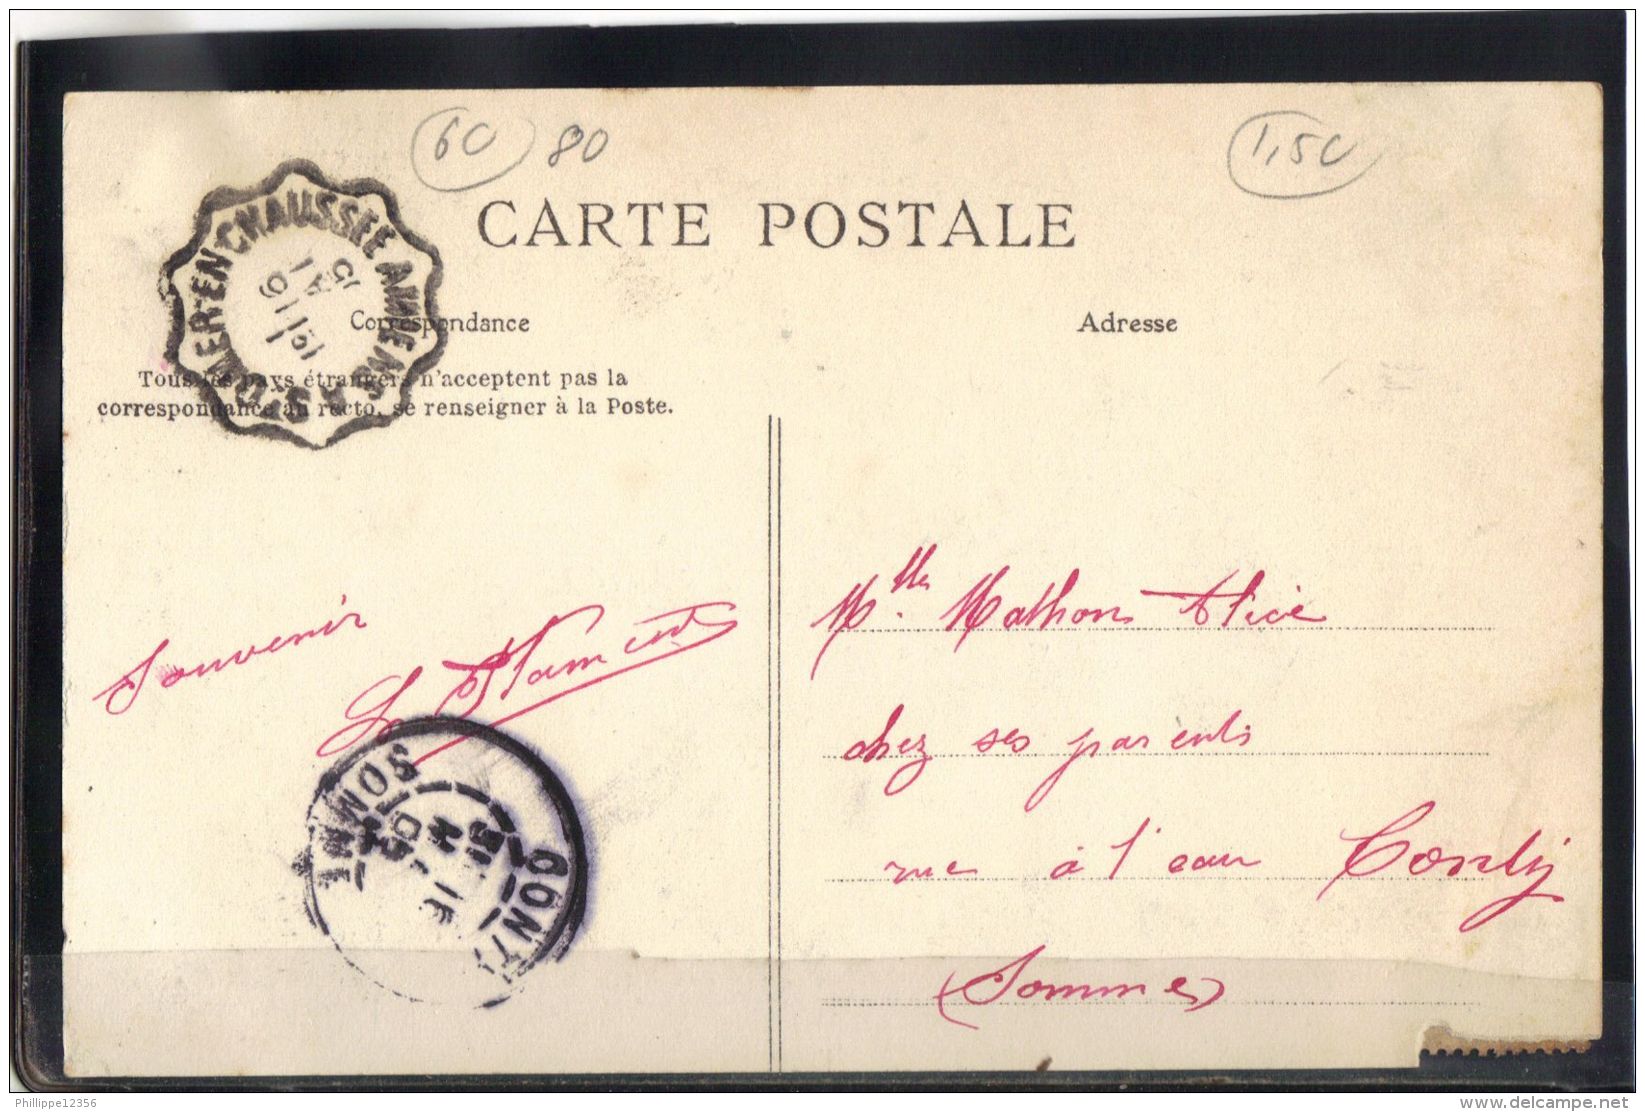 60 80 1,50
CARTE POSTALE
ST-OMER-EN-CHAUSSEE A AMIENS
Correspondance
Adresse
Tous les pays étrangers n'acceptent pas la
correspondance au recto, se renseigner à la Poste.
Souvenir
Mlle. Mathon Alice
chez ses parents
rue à l'eau Conty
(Somme)
CONTY
SOMME
Philippe12356
www.delcampe.net